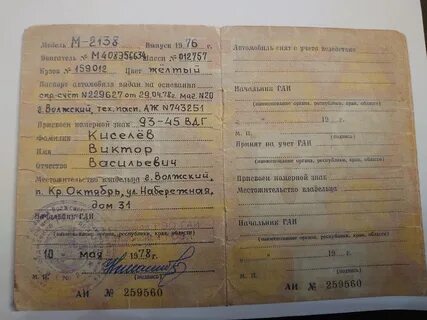 Модель М-2138 Выпуск 1976 г.
Двигатель № М408956634 Шасси № 012757
Кузов № 159012 Цвет жёлтый
Паспорт автомобиля выдан на основании
спр-счёт №229627 от 29.04.78 маг №20
г. Волжский, тех. пасп. АЖ №743251
Присвоен номерной знак 93-45 ВДГ
Фамилия Киселёв
Имя Виктор
Отчество Васильевич
Местожительство владельца г. Волжский,
п. Кр. Октябрь, ул. Набережная,
дом 31
Начальник ГАИ
(наименование органа, республики, края, области)
10 мая 1978 г.
М. П. (подпись)
АИ № 259560
Автомобиль снят с учета вследствие
Начальник ГАИ
(наименование органа, республики, края, области)
19 г.
М. П. (подпись)
Принят на учет ГАИ
(наименование органа, республики, края, области)
Присвоен номерной знак
Местожительство владельца
Начальник ГАИ
(наименование органа, республики, края, области)
19 г.
М. П. (подпись)
АИ № 259560